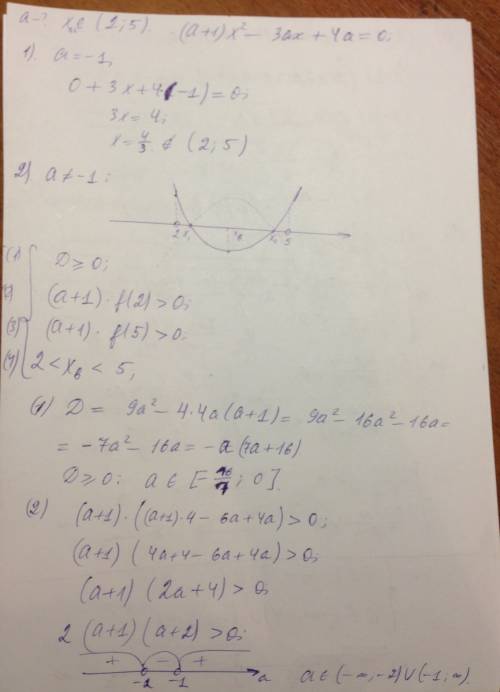 a-? x₀∈ (2;5). (a+1)x² - 3ax + 4a = 0;
1). a = -1,
0 + 3x + 4·(-1) = 0;
3x = 4;
x = 4/3 ∉ (2;5)
2) a ≠ -1;
2 x₁ x_B x₂ 5
(1) D ≥ 0;
(2) (a+1)·f(2) > 0;
(3) (a+1)·f(5) > 0.
(4) 2 < x_B < 5,
(1) D = 9a² - 4·4a(a+1) = 9a² - 16a² - 16a =
= -7a² - 16a = -a(7a+16)
D ≥ 0: a ∈ [-16/7; 0].
(2) (a+1)·((a+1)·4 - 6a + 4a) > 0;
(a+1)(4a+4 - 6a + 4a) > 0;
(a+1)(2a+4) > 0;
2(a+1)(a+2) > 0;
+ - +
-2 -1 a a ∈ (-∞; -2) ∪ (-1; ∞).